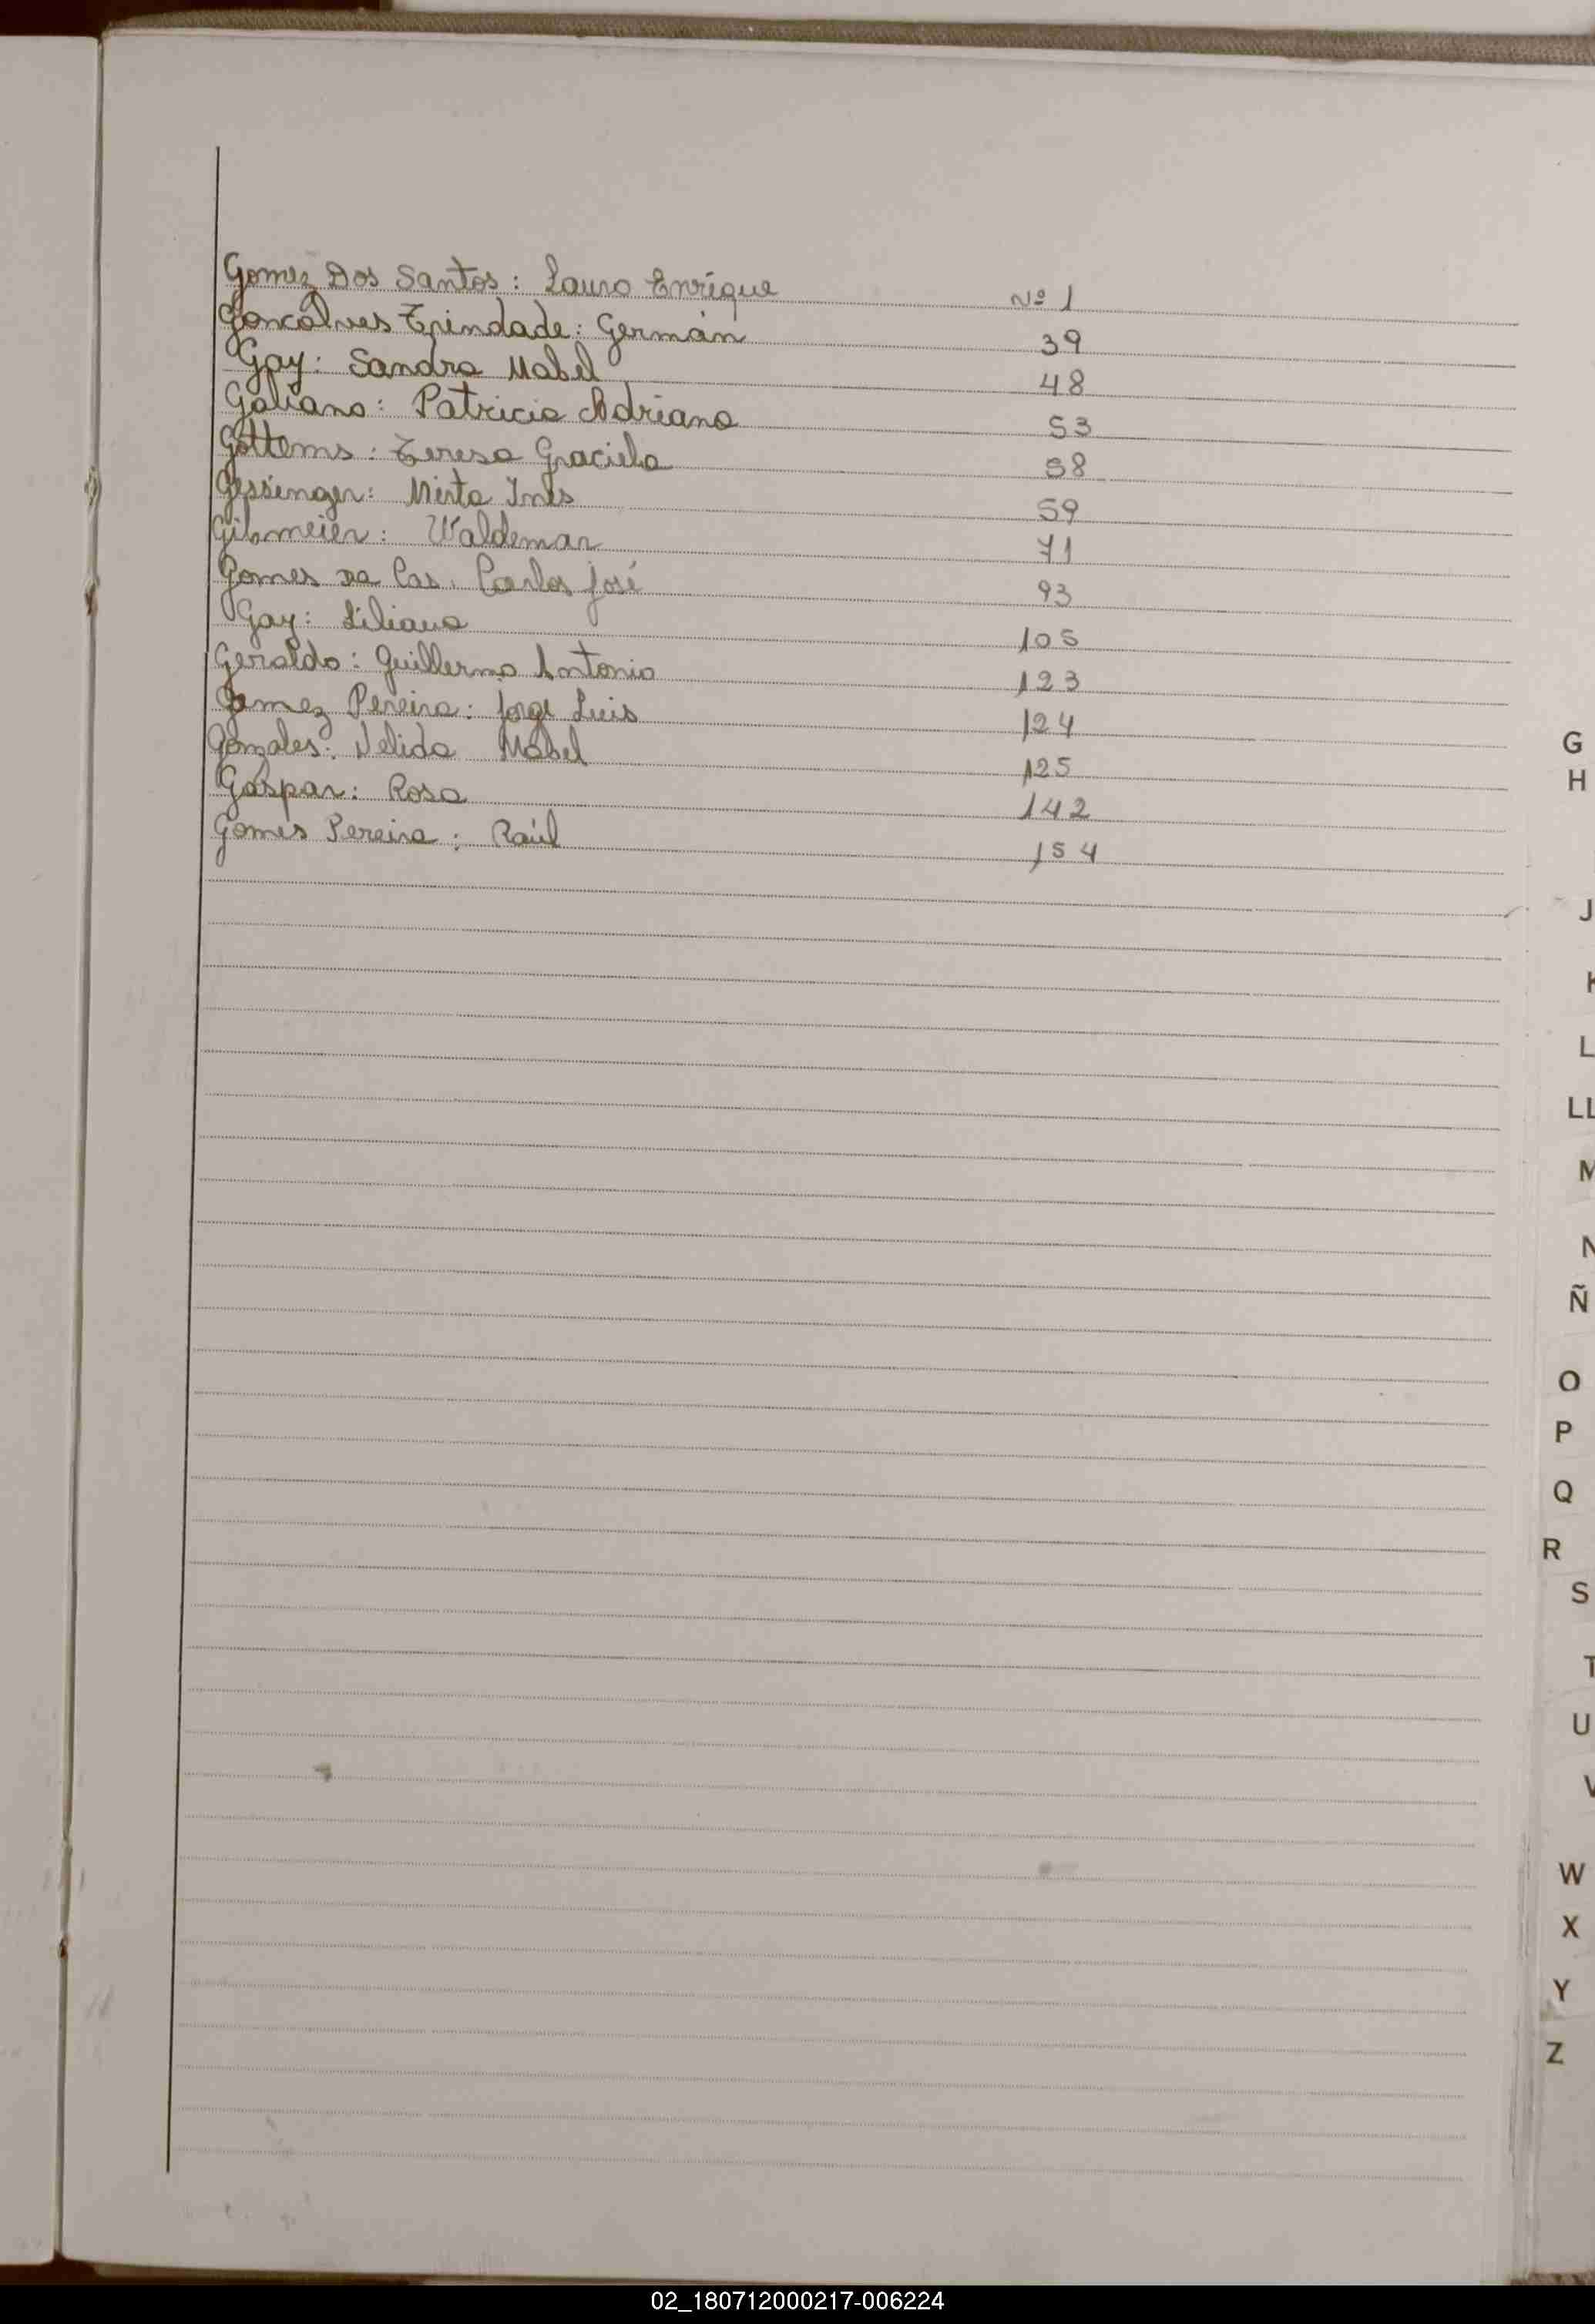 Gomez Dos Santos: Lauro Enrique Nº 1
Goncalves Trindade: Germán 39
Gay: Sandra Mabel 48
Galiano: Patricia Adriana 53
Gottems: Teresa Graciela 58
Gessinger: Mirta Inés 59
Gibmeier: Waldemar 71
Gomes Da Cas. Carlos José 93
Gay: Liliana 105
Geraldo: Guillermo Antonio 123
Gomez Pereira: Jorge Luis 124
Gonzales: Nelida Mabel 125
Gaspar: Rosa 142
Gomes Pereira: Raúl 154
G
H
J
K
L
LL
M
N
Ñ
O
P
Q
R
S
T
U
V
W
X
Y
Z
02_180712000217-006224